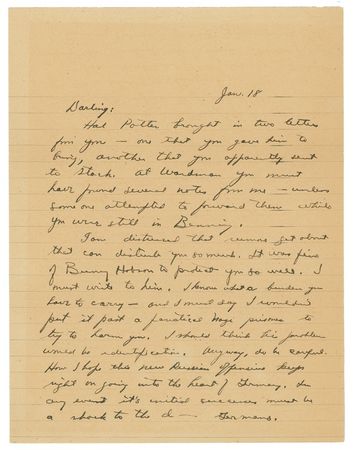 Jan. 18
Darling:
Hal Potter brought in two letters
from you — one that you gave him to
bring, another that you apparently sent
to Stark. At Wardman you must
have found several notes from me — unless
some one attempted to forward them while
you were still in Benning.
I am distressed that rumors get about
that can disturb you so much. It was fine
of Benny Hobson to protect you so well. I
must write to him. I know what a burden you
have to carry — and I must say I wouldn't
put it past a fanatical Nazi prisoner to
try to harm you. I should think his problem
would be identification. Anyway, do be careful.
How I hope this new Russian offensive keeps
right on going into the heart of Germany. In
any event it's initial successes must be
a shock to the d— Germans.